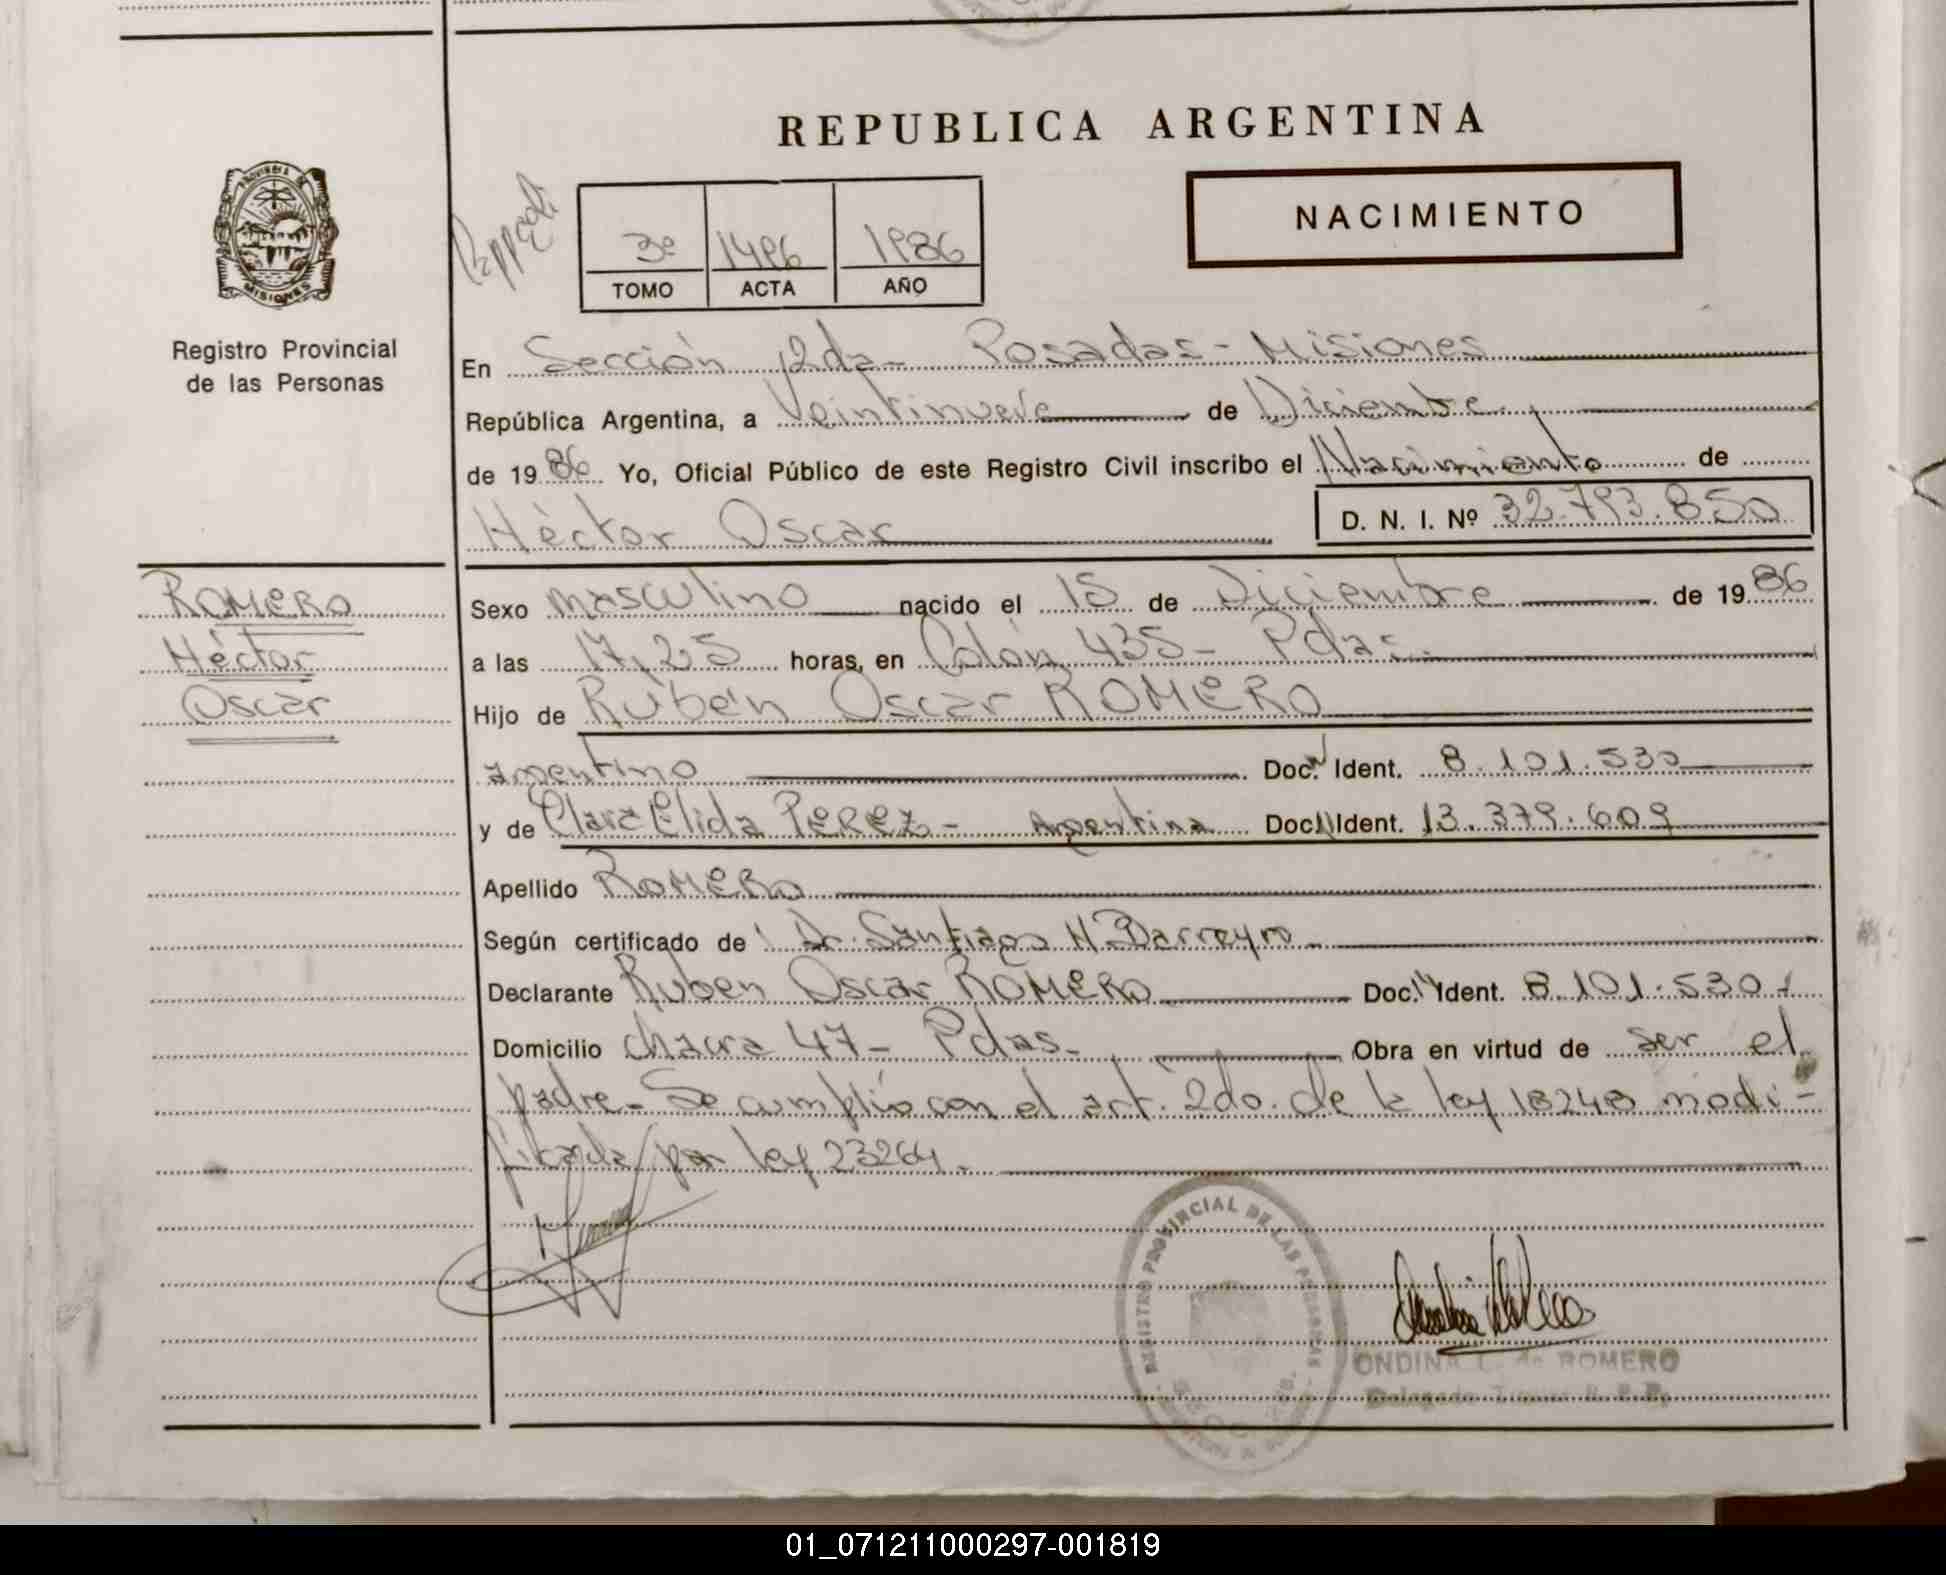 REPUBLICA ARGENTINA
PROVINCIA DE
MISIONES
Registro Provincial
de las Personas
3º 1496 1986
TOMO ACTA AÑO
NACIMIENTO
En Sección 2da - Posadas - Misiones
República Argentina, a Veintinueve de Diciembre
de 1986 Yo, Oficial Público de este Registro Civil inscribo el Nacimiento de
Héctor Oscar D. N. I. Nº 32.793.850
ROMERO
Héctor
Oscar
Sexo masculino nacido el 15 de Diciembre de 1986
a las 17,25 horas, en Colón 435 - Pdas.
Hijo de Rubén Oscar ROMERO
argentino Doc. Ident. 8.101.530
y de Clara Elida PEREZ - Argentina Doc. Ident. 13.379.609
Apellido ROMERO
Según certificado de Dr. Santiago H. Barreyro
Declarante Rubén Oscar ROMERO Doc. Ident. 8.101.530
Domicilio chacra 47 - Pdas. Obra en virtud de ser el
padre - Se cumplió con el art. 2do. de la ley 18248 modi-
ficada por ley 23264.
REGISTRO PROVINCIAL DE LAS PERSONAS
ONDINA L. de ROMERO
01_071211000297-001819